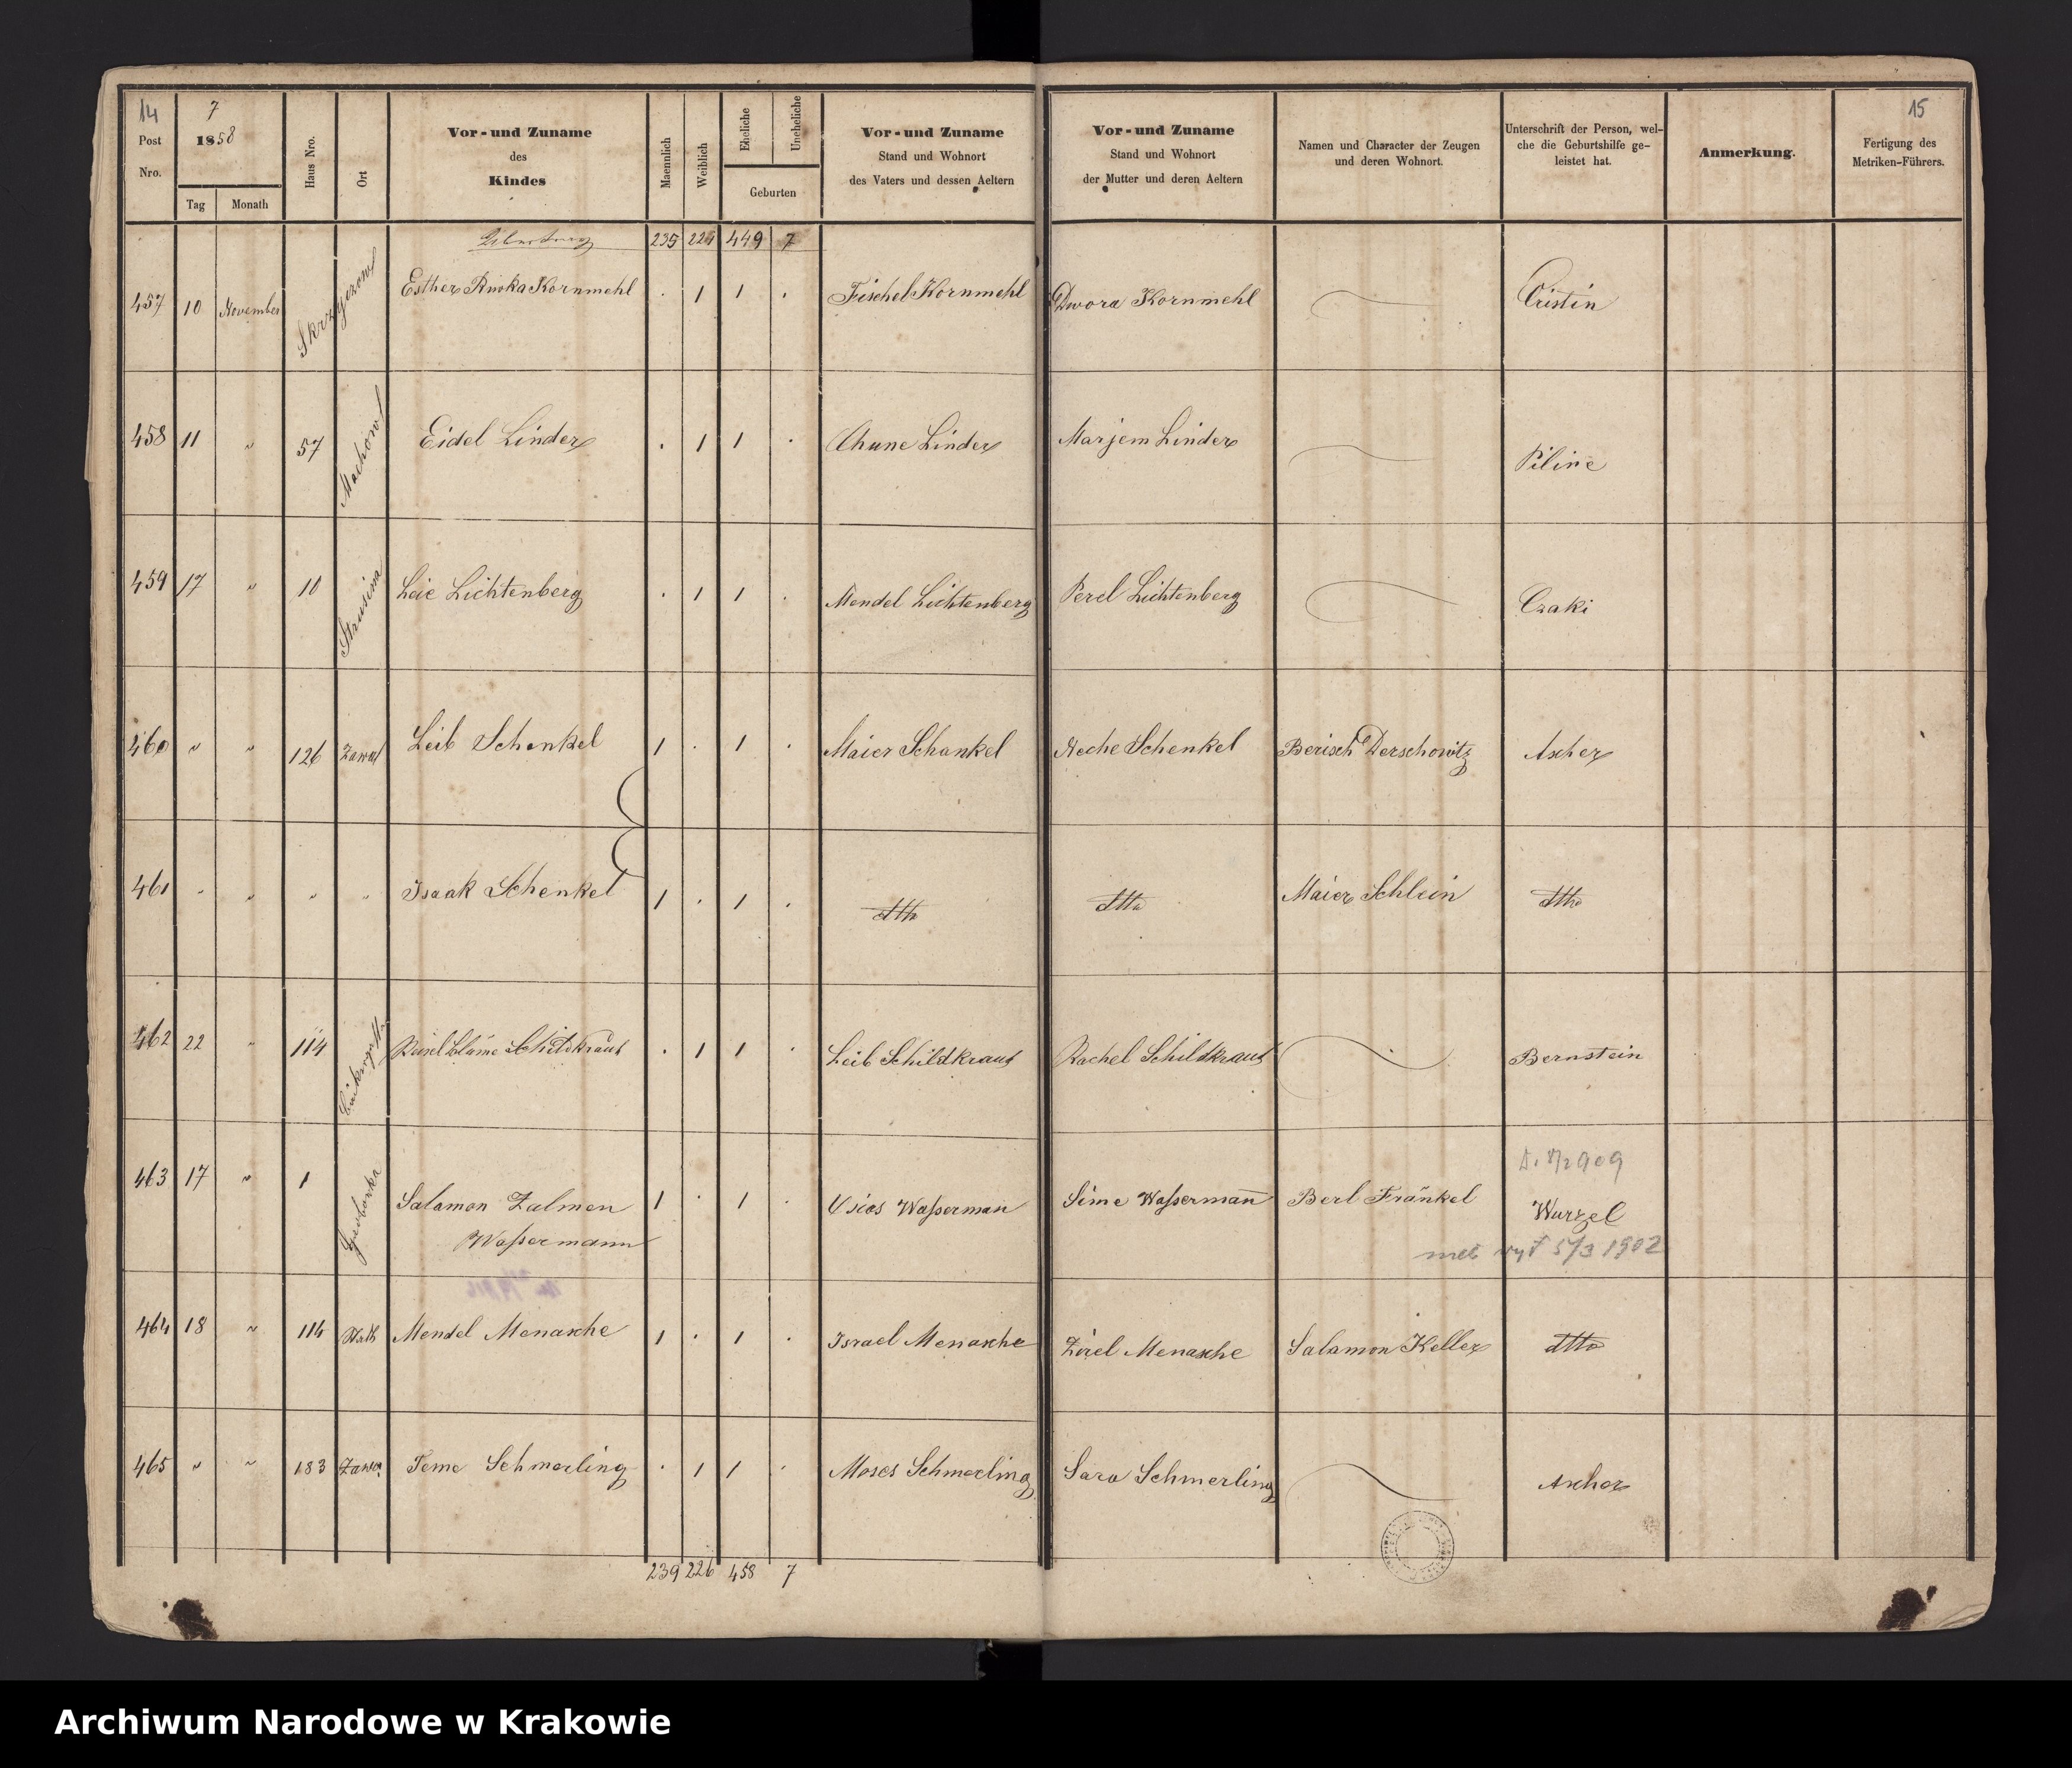 14
7
15
Post
Nro.
1858
Tag
Monath
Haus Nro.
Ort
Vor- und Zuname
des
Kindes
Maennlich
Weiblich
Eheliche
Uneheliche
Geburten
Vor- und Zuname
Stand und Wohnort
des Vaters und dessen Aeltern
Vor- und Zuname
Stand und Wohnort
der Mutter und deren Aeltern
Namen und Character der Zeugen
und deren Wohnort.
Unterschrift der Person, wel-
che die Geburtshilfe ge-
leistet hat.
Anmerkung.
Fertigung des
Metriken-Führers.
Übertrag 235 224 449 7
457 10 November Skrzyszow Esther Rivka Kornmehl . 1 1 . Fischel Kornmehl Dwora Kornmehl Cristin
458 11 " 57 Machow Eidel Linder . 1 1 . Chune Linder Marjem Linder Piline
459 17 " 10 Strusina Leie Lichtenberg . 1 1 . Mendel Lichtenberg Perel Lichtenberg Czaki
460 " " 126 Zawal Leib Schenkel 1 . 1 . Maier Schankel Neche Schenkel Berisch Derschowitz Ascher
461 " " " " Isaak Schenkel 1 . 1 . dtto dtto Maier Schlein dtto
462 22 " 114 Schildkraut . 1 1 . Leib Schildkraut Rachel Schildkraut Bernstein
463 17 " 1 Salamon Zalmen 1 . 1 . Waßerman Sime Waßermañ Berl Fränkel Wurzel
Waßermann
909
5/3 1902
464 18 " 114 Stadt Mendel Menasche 1 . 1 . Israel Menasche Zirel Menasche Salamon Keller dtto
465 " " 183 Zawa Teme Schmerling . 1 1 . Moses Schmerling Sara Schmerling Ascher
239 226 458 7
Archiwum Narodowe w Krakowie